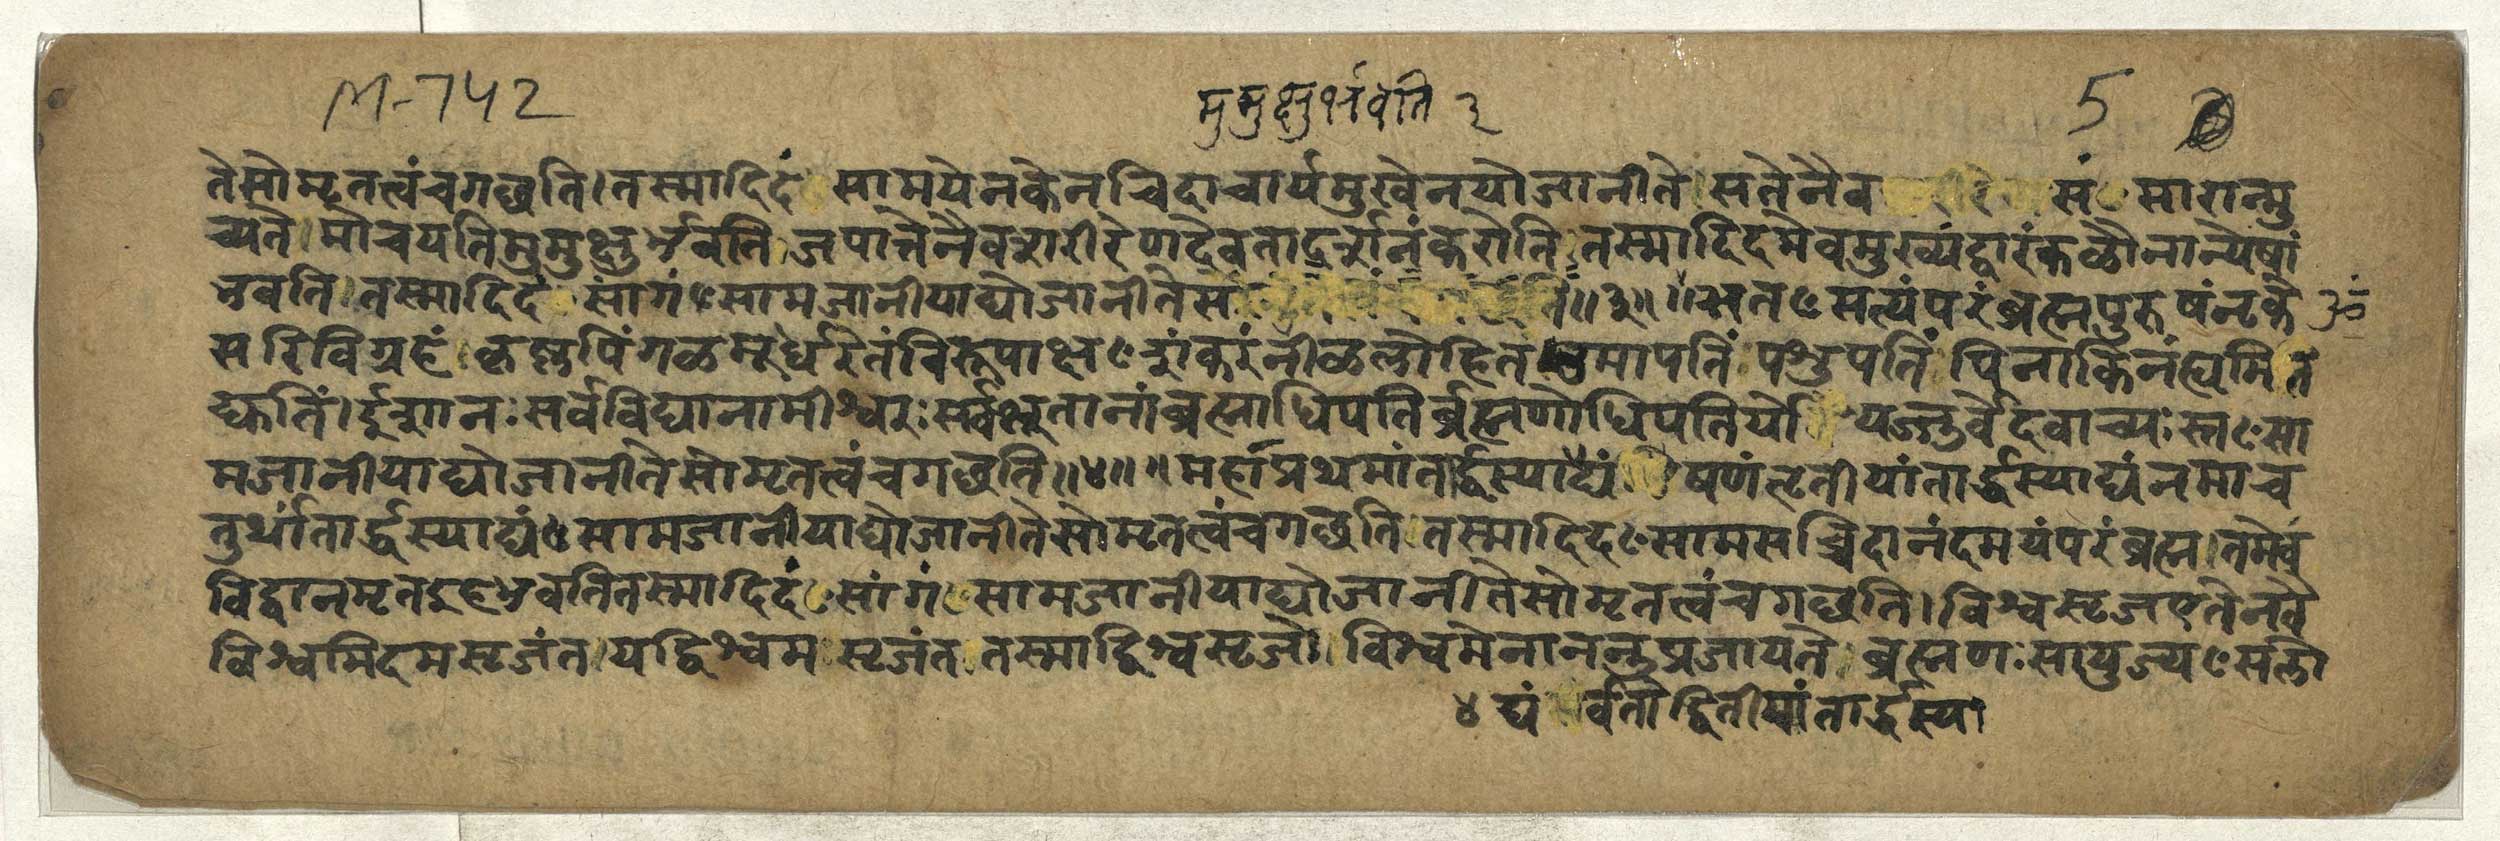 M-742
मुमुक्षुर्भवति ३
5
तेसोमृतत्वंचगछति।तस्मादिदं सामयेनकेनचिदाचार्यमुखेनयोजानीते।सतेनैव संꣳसारान्मु
च्यते।मोचयतिमुमुक्षुर्भवति।जपात्तेनैवशरीरेणदेवतादर्शनंकरोति।तस्मादिदमेवमुख्यंद्वारंकळौनान्येषां
भवति।तस्मादिदं सांगंꣳसामजानीयाद्योजानीतेस ॥३॥ ॥ऋतꣳसत्यंपरंब्रह्मपुरुषंनृके
ॐ
सरिविग्रहं।कृष्णपिंगळमूर्ध्वरेतंविरूपाक्षꣳशंकरंनीळलोहितमुमापतिं पशुपतिं पिनाकिनंह्यमित
द्युतिं।ईशानःसर्वविद्यानामीश्वरःसर्वभूतानांब्रह्माधिपतिर्ब्रह्मणोधिपतिर्यो यजुर्वेदवाच्यःस्तꣳसा
मजानीयाद्योजानीतेसोमृतत्वंचगछति॥४॥ ॥महांप्रथमांतार्द्धस्याद्यं षणंतृतीयांतार्द्धस्याद्यंनमाच
तुर्थांतार्द्धस्याद्यंꣳसामजानीयाद्योजानीतेसोमृतत्वंचगछति।तस्मादिदꣳसामसच्चिदानंदमयंपरंब्रह्म।तमेवं
विद्वानमृतइहभवतितस्मादिदंꣳसांगंꣳसामजानीयाद्योजानीतेसोमृतत्वंचगछति।विश्वसृजएतेनवै
विश्वमिदमसृजंत।यद्विश्वमसृजंत।तस्माद्विश्वसृजो।विश्वमेनाननुप्रजायते।ब्रह्मणःसायुज्यꣳसलो
४ द्यं र्वतोद्वितीयांतार्द्धस्या